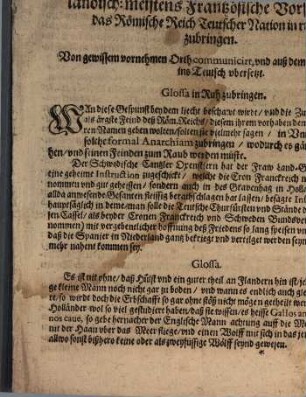 ländisch: meistens Frantzösische Vor
das Römische Reich Teutscher Nation in r
zubringen.
Von gewissem vornehmen Orth communicirt, vnd auß dem
ins Teutsch vbersetzt.
Glossa in Ruh zubringen.
WAn diese Gespunst beydem liecht beschawt wirdt / vnd die Zu
als ärgste Feind deß Röm. Reichs / diesem ihrem vorhaben den
ren Namen geben wolten / solten sie vielmehr sagen / in Vn
solche formal Anarchiam zubringen / wodurch es gä
hen / vnd seinen Feinden zum Raub werden müste.
Der Schwedische Cantzler Oxenstiern hat der Fraw Land-G
eine geheime Instruction zugeschickt / welche die Cron Franckreich
nommen vnd gut geheissen / sondern auch in des Gravenhag in Holl
allda anwesende Gesanten fleissig berathschlagen hat lassen / besagte Ins
hauptsächlich in deme / man solle die Teutsche Churfürsten vnd Stände
sen Cassel / als beyder Cronen Franckreich vnd Schweden Bundsver
nommen) mit vergebentlicher hoffnung deß Friedens so lang speisen vn
daß die Spanier in Niederland gantz bekriegt vnd vertilget werden sey
mehr nahent kommen sey.
Glossa.
Es ist nit ohne / daß Hülst vnd ein guter theil an Flandern hin ist / je
ge kleine Mann noch nicht gar zu boden / vnd wann es endlich auch gle
te / so wirdt doch die Erbschafft so gar ohne stöß nicht mögen getheilt wer
Holländer wol so viel gestudiert haben / daß sie wissen / es heisse Gallos am
nos caue, so gebe hernacher der Englische Mann achtung auff die M
mit der Haan vber das Meer fliege / vnd einen Wolff mit sich in das je
allwo sonst bißhero keine oder als zweyfüssige Wölff seynd gewesen.